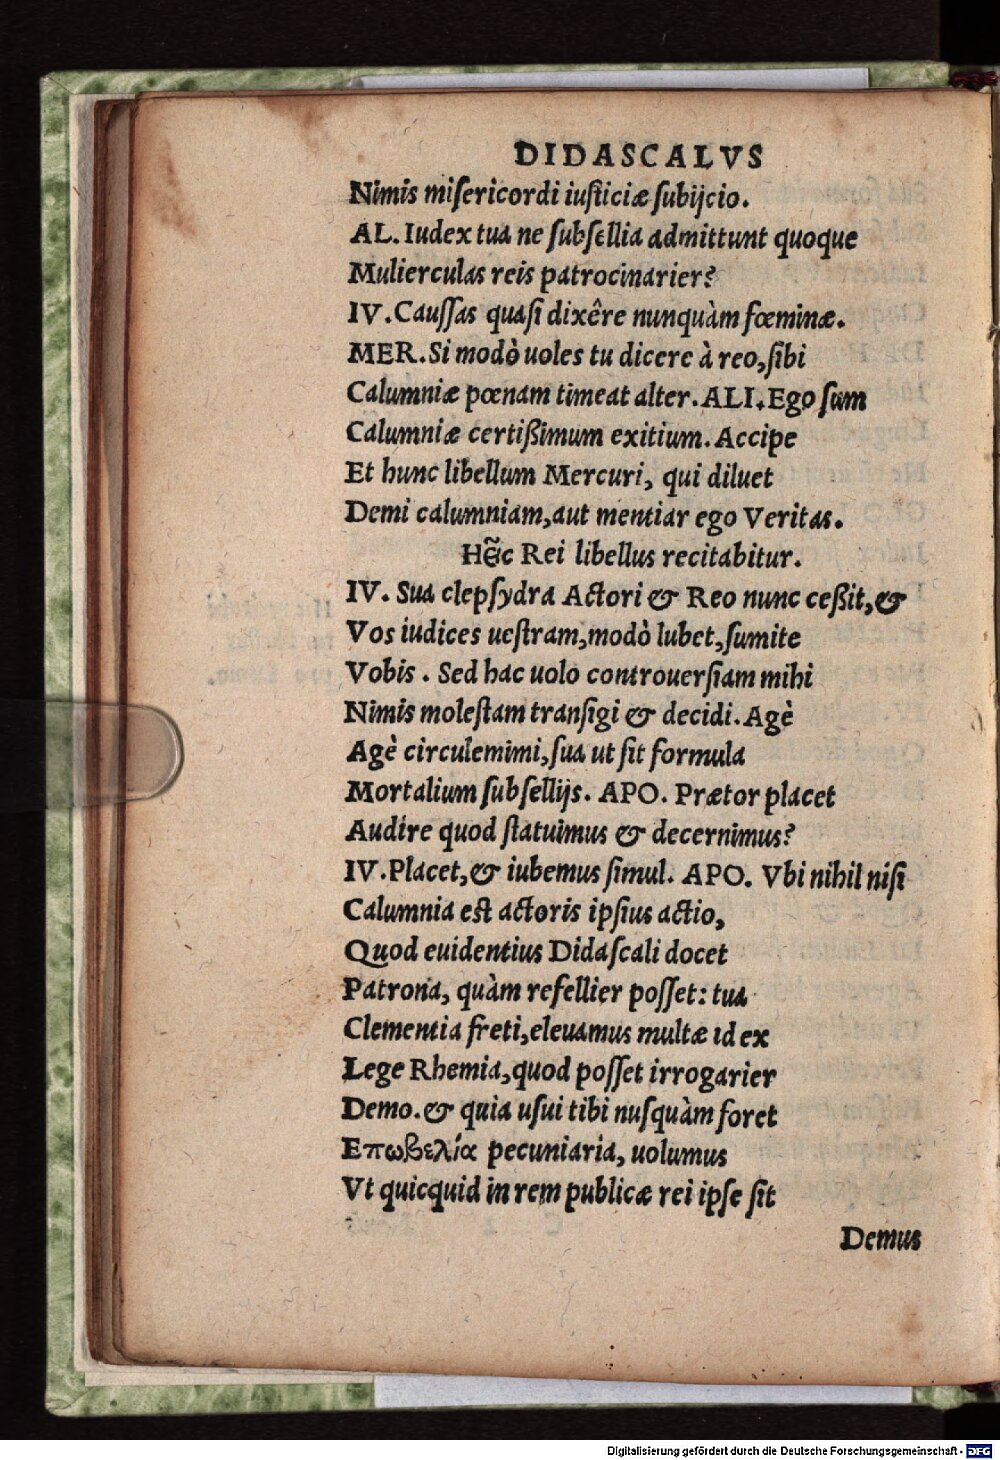 DIDASCALVS
Nimis misericordi iusticiæ subijcio.
AL. Iudex tua ne subsellia admittunt quoque
Mulierculas reis patrocinarier?
IV. Caussas quasi dixêre nunquàm fœminæ.
MER. Si modò uoles tu dicere à reo, sibi
Calumniæ pœnam timeat alter. ALI. Ego sum
Calumniæ certißimum exitium. Accipe
Et hunc libellum Mercuri, qui diluet
Demi calumniam, aut mentiar ego Veritas.
Rei libellus recitabitur.
IV. Sua clepsydra Actori & Reo nunc ceßit, &
Vos iudices uestram, modò lubet, sumite
Vobis. Sed hac uolo controuersiam mihi
Nimis molestam transigi & decidi. Agè
Agè circulemimi, sua ut sit formula
Mortalium subsellijs. APO. Prætor placet
Audire quod statuimus & decernimus?
IV. Placet, & iubemus simul. APO. Vbi nihil nisi
Calumnia est actoris ipsius actio,
Quod euidentius Didascali docet
Patrona, quàm refellier posset: tua
Clementia freti, eleuamus multæ id ex
Lege Rhemia, quod posset irrogarier
Demo. & quia usui tibi nusquàm foret
Επωβελία pecuniaria, uolumus
Vt quicquid in rem publicæ rei ipse sit
Demus
Digitalisierung gefördert durch die Deutsche Forschungsgemeinschaft - DFG